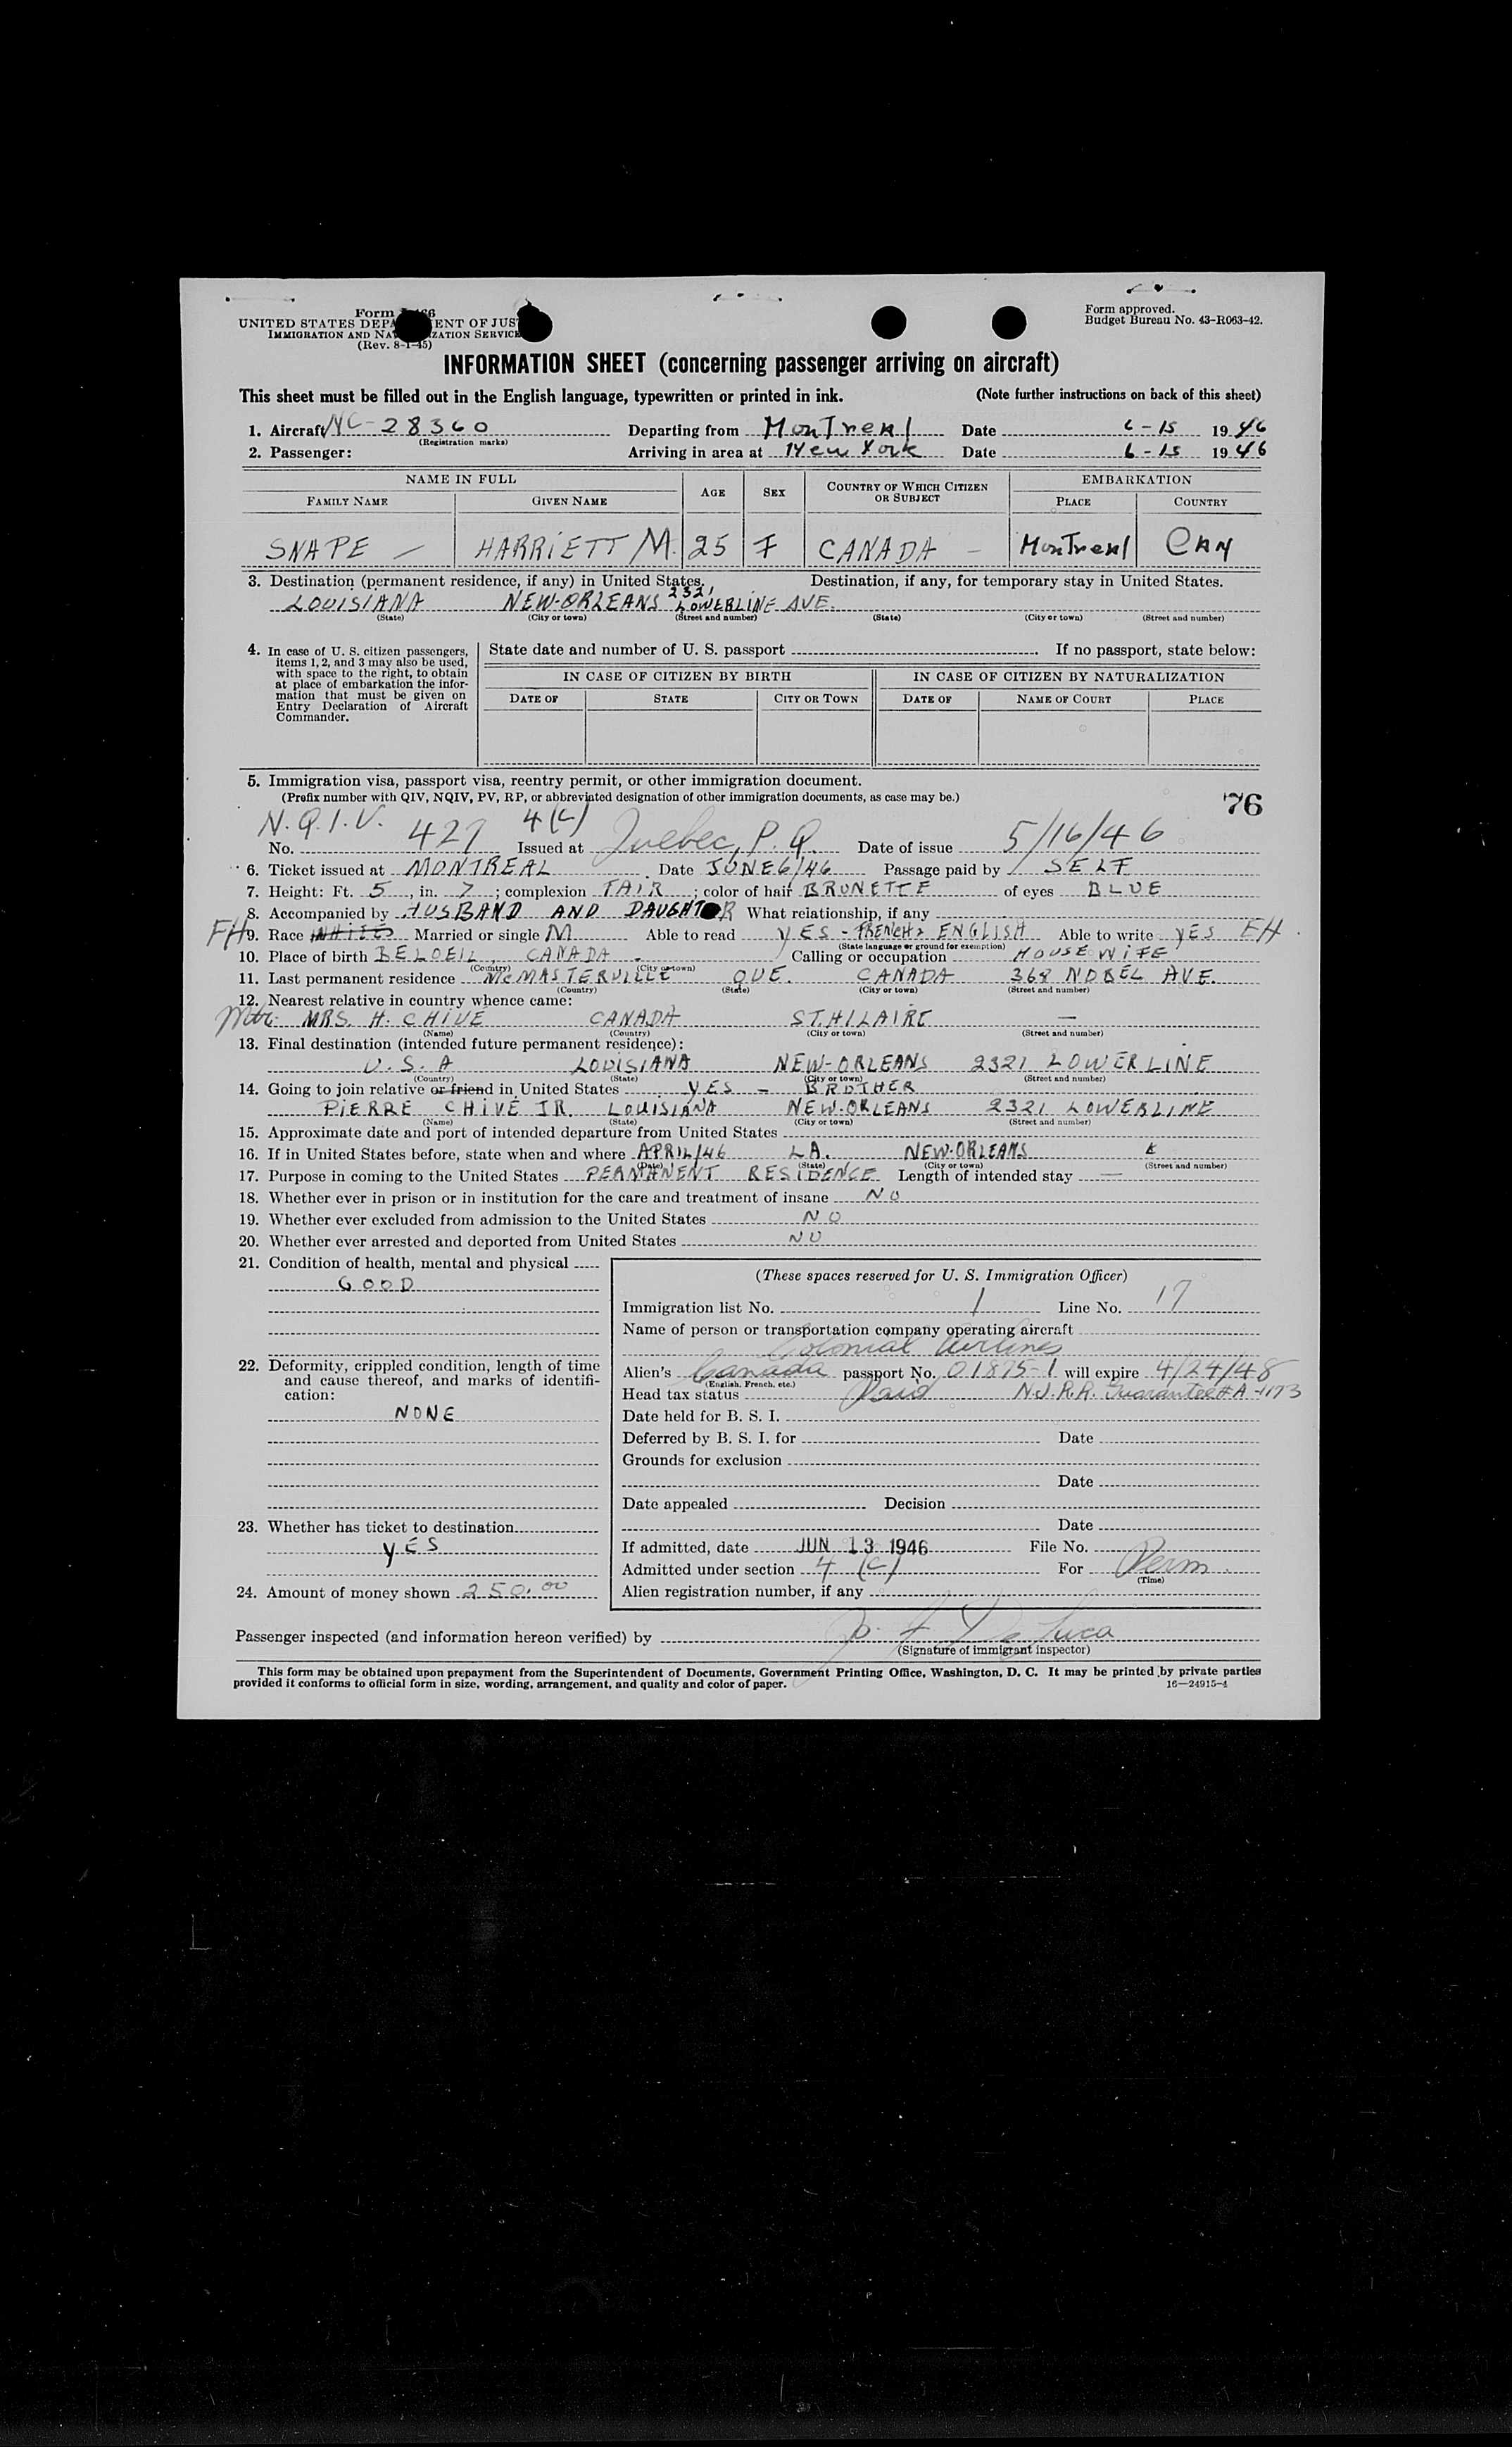 Form I-466
UNITED STATES DEPARTMENT OF JUSTICE
IMMIGRATION AND NATURALIZATION SERVICE
(Rev. 8-1-45)
Form approved.
Budget Bureau No. 43-R063-42.
INFORMATION SHEET (concerning passenger arriving on aircraft)
This sheet must be filled out in the English language, typewritten or printed in ink. (Note further instructions on back of this sheet)
1. Aircraft NC-28360 Departing from Montreal Date 6-15 1946
(Registration marks)
2. Passenger: Arriving in area at New York Date 6-15 1946
NAME IN FULL AGE SEX COUNTRY OF WHICH CITIZEN OR SUBJECT EMBARKATION
FAMILY NAME GIVEN NAME PLACE COUNTRY
SNAPE - HARRIETT M. 25 F CANADA - MonTreal CAN
3. Destination (permanent residence, if any) in United States. Destination, if any, for temporary stay in United States.
LOUISIANA NEW-ORLEANS 2321 LOWERLINE AVE.
(State) (City or town) (Street and number) (State) (City or town) (Street and number)
4. In case of U. S. citizen passengers, items 1, 2, and 3 may also be used, with space to the right, to obtain at place of embarkation the information that must be given on Entry Declaration of Aircraft Commander.
State date and number of U. S. passport If no passport, state below:
IN CASE OF CITIZEN BY BIRTH IN CASE OF CITIZEN BY NATURALIZATION
DATE OF STATE CITY OR TOWN DATE OF NAME OF COURT PLACE
5. Immigration visa, passport visa, reentry permit, or other immigration document.
(Prefix number with QIV, NQIV, PV, RP, or abbreviated designation of other immigration documents, as case may be.) 76
N.Q.I.V. 4(c)
No. 427 Issued at Quebec, P.Q. Date of issue 5/16/46
6. Ticket issued at MONTREAL Date JUNE 6/46 Passage paid by SELF
7. Height: Ft. 5, in. 7; complexion FAIR; color of hair BRUNETTE of eyes BLUE
8. Accompanied by HUSBAND AND DAUGHTOR What relationship, if any
FH 9. Race WHITE Married or single M Able to read YES - FRENCH & ENGLISH Able to write YES EH
(State language or ground for exemption)
10. Place of birth BELOEIL, CANADA. Calling or occupation HOUSEWIFE
(Country) (City or town)
11. Last permanent residence McMASTERVILLE QUE. CANADA 368 NOBEL AVE.
(Country) (State) (City or town) (Street and number)
12. Nearest relative in country whence came:
MRS. H. CHIVE CANADA ST. HILAIRE —
(Name) (Country) (City or town) (Street and number)
13. Final destination (intended future permanent residence):
U.S.A LOUISIANA NEW-ORLEANS 2321 LOWERLINE
(Country) (State) (City or town) (Street and number)
14. Going to join relative or friend in United States YES - BROTHER
PIERRE CHIVE JR. LOUISIANA NEW-ORLEANS 2321 LOWERLINE
(Name) (State) (City or town) (Street and number)
15. Approximate date and port of intended departure from United States
16. If in United States before, state when and where APRIL/46 LA. NEW-ORLEANS
(Date) (State) (City or town) (Street and number)
17. Purpose in coming to the United States PERMANENT RESIDENCE Length of intended stay —
18. Whether ever in prison or in institution for the care and treatment of insane NO
19. Whether ever excluded from admission to the United States NO
20. Whether ever arrested and deported from United States NO
21. Condition of health, mental and physical
GOOD
22. Deformity, crippled condition, length of time and cause thereof, and marks of identification:
NONE
23. Whether has ticket to destination
YES
24. Amount of money shown 250.00
(These spaces reserved for U. S. Immigration Officer)
Immigration list No. 1 Line No. 17
Name of person or transportation company operating aircraft
Colonial Airlines
Alien's Canada passport No. 01875-1 will expire 4/24/48
(English, French, etc.)
Head tax status Paid N.J.R.R. Guarantee # A-1173
Date held for B. S. I.
Deferred by B. S. I. for Date
Grounds for exclusion
Date
Date appealed Decision
Date
If admitted, date JUN 13 1946 File No.
Admitted under section 4 (c) For Perm
(Time)
Alien registration number, if any
Passenger inspected (and information hereon verified) by De Luca
(Signature of immigrant inspector)
This form may be obtained upon prepayment from the Superintendent of Documents, Government Printing Office, Washington, D. C. It may be printed by private parties
provided it conforms to official form in size, wording, arrangement, and quality and color of paper. 16—24915-4